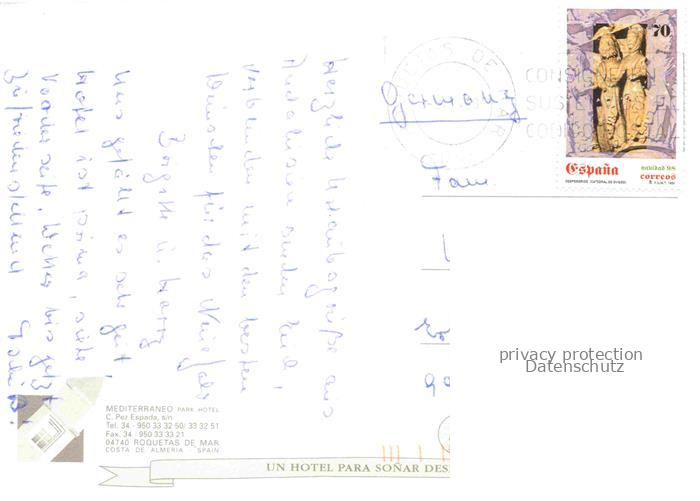 Herzliche Urlaubsgrüße aus
Andalusien senden Euch,
verbunden mit den besten
Wünschen für das Neue Jahr
Brigitte u. Harry
Uns gefällt es sehr gut,
Hotel ist prima, siehe
Vorderseite, Wetter bis jetzt
zufriedenstellend
Germany
Fam
70
CONSIGNE
CODIGO
España
navidad 98
correos
privacy protection
Datenschutz
MEDITERRANEO PARK HOTEL
C. Pez Espada, s/n
Tel. 34 - 950 33 32 50/ 33 32 51
Fax. 34 - 950 33 33 21
04740 ROQUETAS DE MAR
COSTA DE ALMERIA - SPAIN
UN HOTEL PARA SOÑAR DES